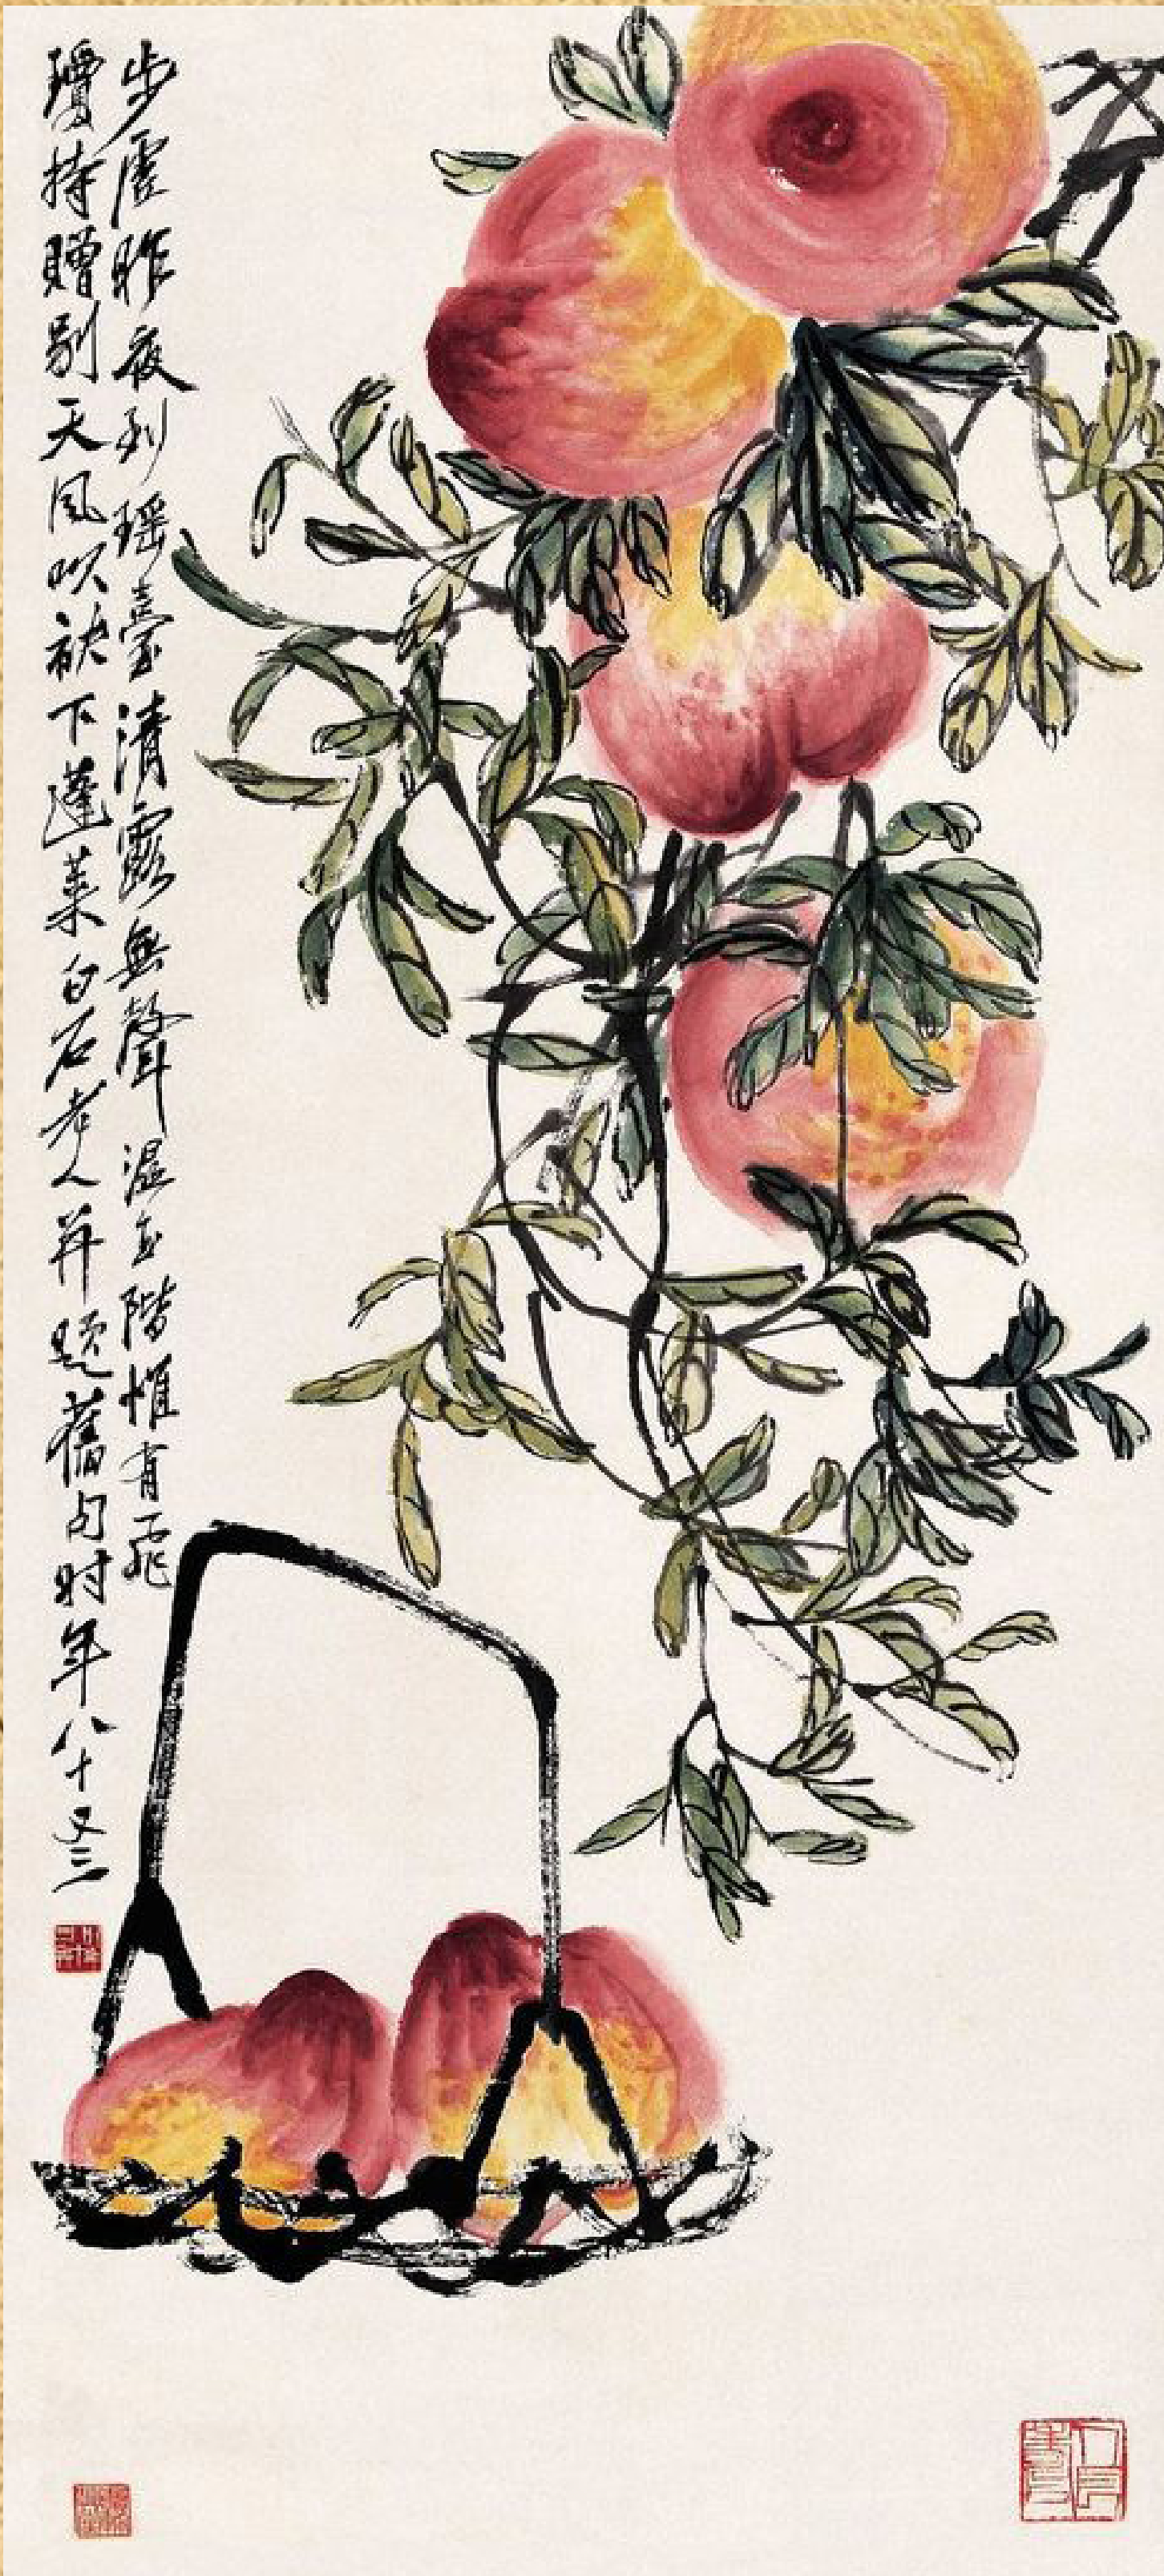 步虛昨夜到瑤臺清露無聲濕玉階惟有飛
瓊持贈別天風吹袂下蓬萊白石老人并題舊句时年八十又三